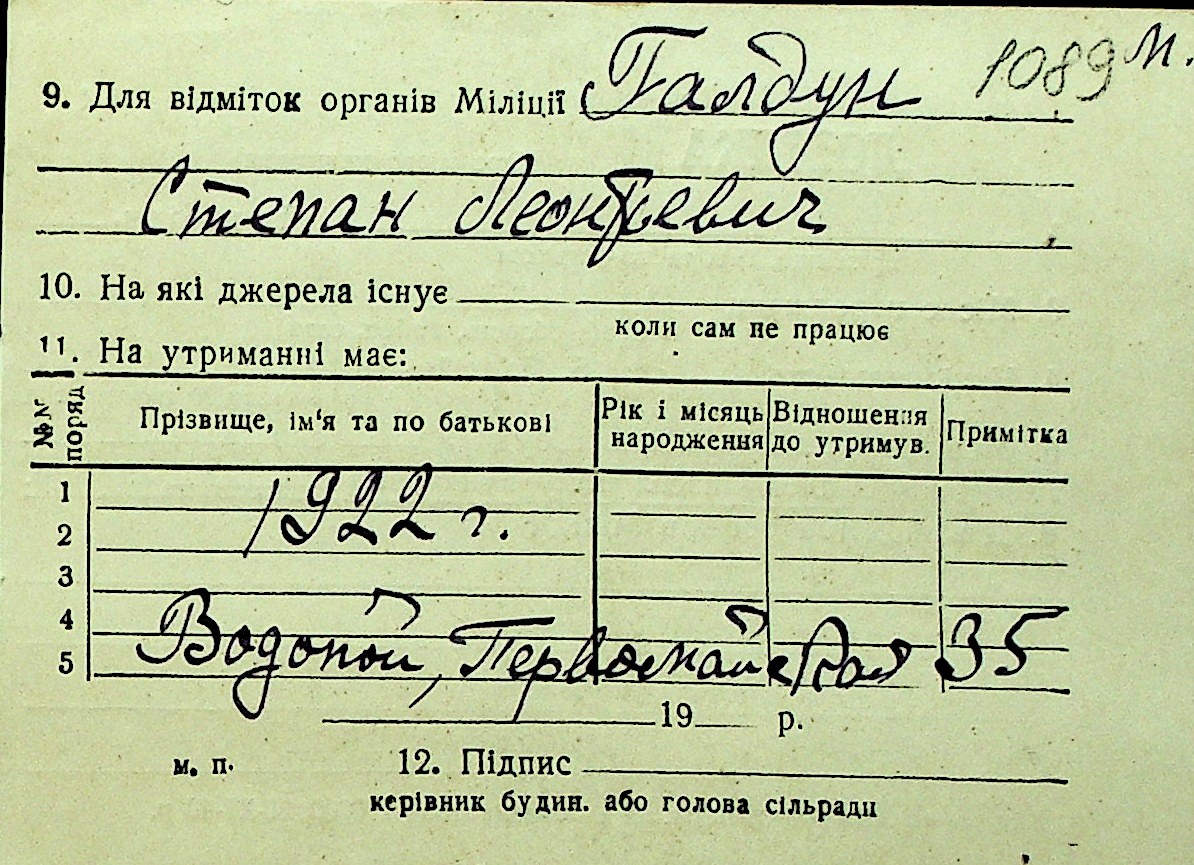 1089 м.
9. Для відміток органів Міліції Галдун
Степан Леонтьевич
10. На які джерела існує
коли сам не працює
11. На утриманні має:
№№ поряд
Прізвище, ім'я та по батькові
Рік і місяць народження
Відношення до утримув.
Примітка
1
1922 г.
2
3
4
Водопой, Первомайская 35
5
19 р.
м. п. 12. Підпис
керівник будин. або голова сільради